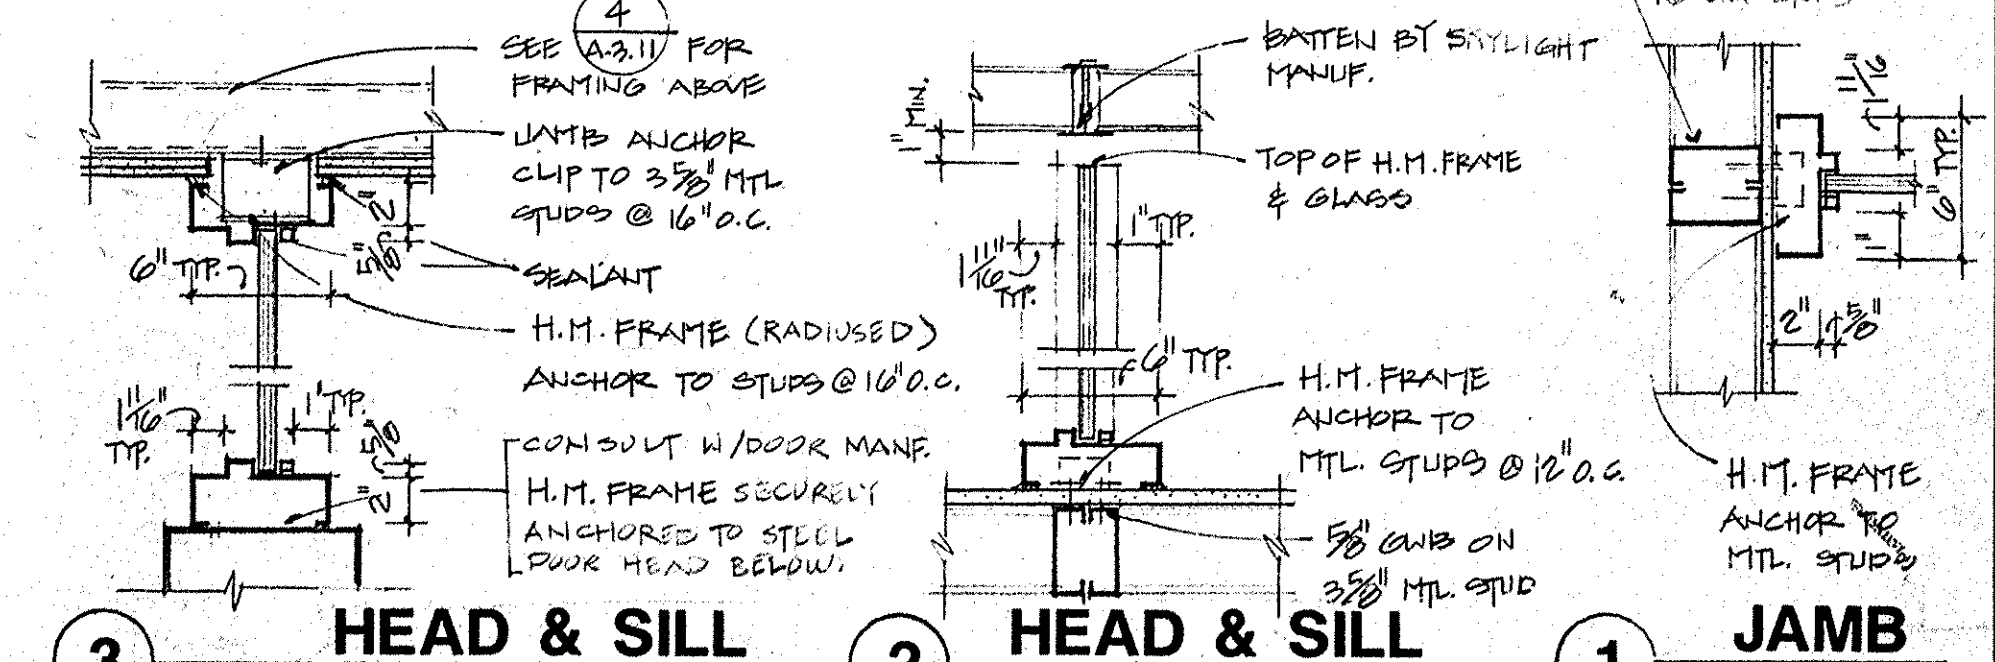 4
SEE A.3.11 FOR
FRAMING ABOVE
JAMB ANCHOR
CLIP TO 3 5/8" MTL
STUDS @ 16" O.C.
2"
5/8"
6" TYP.
SEALANT
H.M. FRAME (RADIUSED)
ANCHOR TO STUDS @ 16" O.C.
1 11/16"
TYP.
1" TYP.
5/8
2"
CONSULT W/DOOR MANF.
H.M. FRAME SECURELY
ANCHORED TO STEEL
DOOR HEAD BELOW.
3
HEAD & SILL
BATTEN BY SKYLIGHT
MANUF.
1" MIN.
TOP OF H.M. FRAME
& GLASS
1" TYP.
1 11/16"
TYP.
6" TYP.
H.M. FRAME
ANCHOR TO
MTL. STUDS @ 12" O.C.
5/8" GWB ON
3 5/8" MTL. STUD
2
HEAD & SILL
1 11/16"
6" TYP.
1"
2"
5/8"
H.M. FRAME
ANCHOR TO
MTL. STUDS
1
JAMB